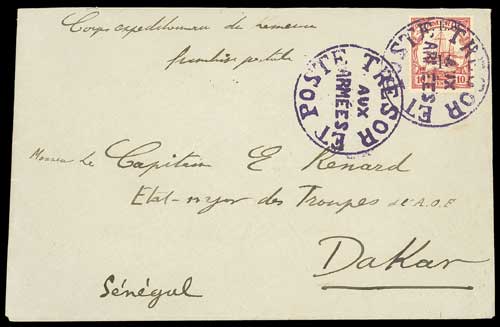 Corps expéditionnaire du Cameroun
franchise postale
TRESOR ET POSTE
AUX
ARMEES
TRESOR ET POSTE
AUX
ARMEES
10 10
Monsieur le Capitaine E Renard
Etat-major des Troupes de l'A.O.F
Dakar
Sénégal